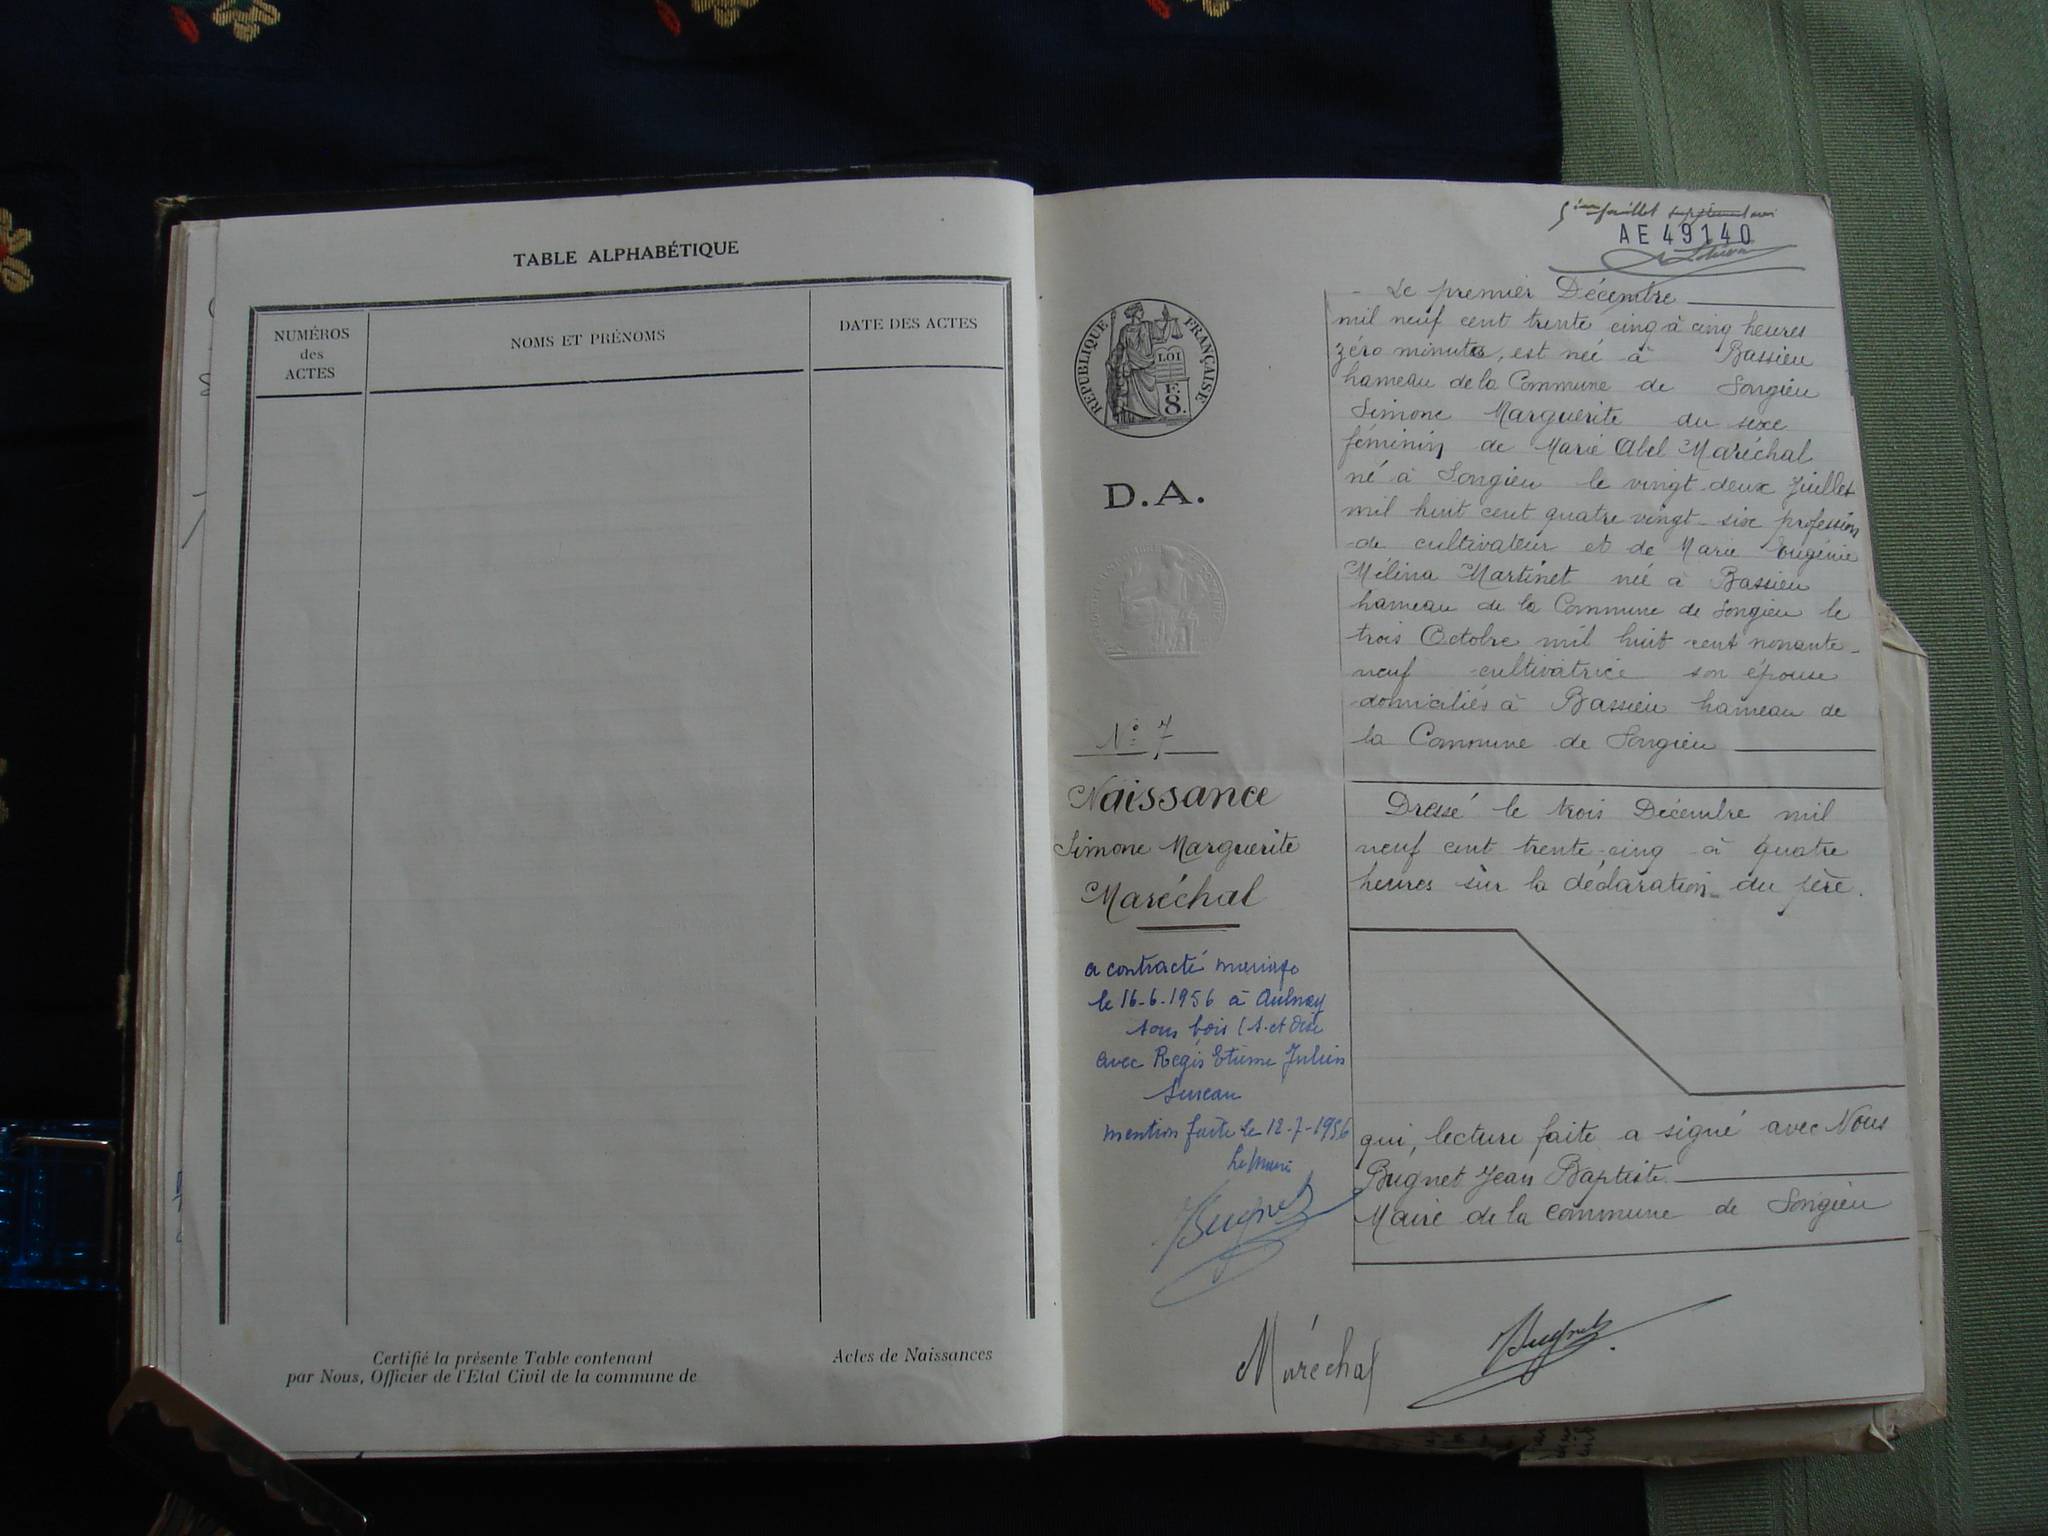 TABLE ALPHABÉTIQUE
NUMÉROS
des
ACTES
NOMS ET PRÉNOMS
DATE DES ACTES
Certifié la présente Table contenant
Actes de Naissances
par Nous, Officier de l'Etat Civil de la commune de
feuillet
AE 49140
RÉPUBLIQUE FRANÇAISE
LOI
F.
8.
D.A.
N° 7
Naissance
Simone Marguerite
Maréchal
a contracté mariage
le 16-6-1956 à Aulnay
sous bois (S. et Oise
avec Régis Etienne Julien
Sureau
mention faite le 12-7-1956
Le Maire
Bugnet
- Le premier Décembre
mil neuf cent trente cinq à cinq heures
zéro minutes, est née à Bassieu
hameau de la Commune de Songieu
Simone Marguerite du sexe
féminin de Marie Abel Maréchal
né à Songieu le vingt-deux Juillet
mil huit cent quatre vingt-six profession
de cultivateur et de Marie Eugénie
Mélina Martinet née à Bassieu
hameau de la Commune de Songieu le
trois Octobre mil huit cent nonante-
neuf cultivatrice son épouse
domiciliés à Bassieu hameau de
la Commune de Songieu
Dressé le trois Décembre mil
neuf cent trente-cinq à quatre
heures sur la déclaration du père.
qui, lecture faite a signé avec Nous
Bugnet Jean Baptiste
Maire de la commune de Songieu
Maréchal
Bugnet